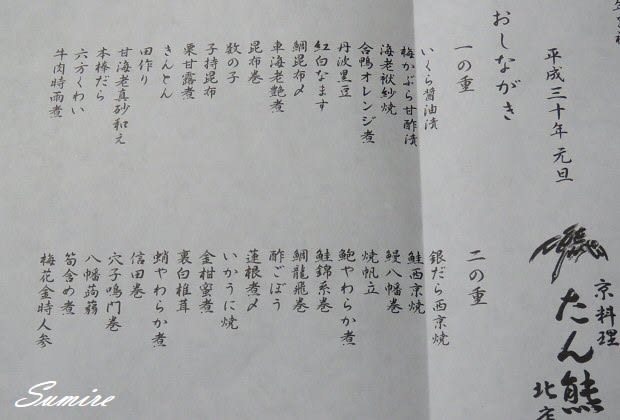 おしながき
平成三十年 元旦
京料理
たん熊
北店
一の重
いくら醤油漬
梅かぶら甘酢漬
海老袱紗焼
合鴨オレンジ煮
丹波黒豆
紅白なます
鯛昆布〆
車海老艶煮
昆布巻
数の子
子持昆布
栗甘露煮
きんとん
田作り
甘海老真砂和え
本棒だら
六方くわい
牛肉時雨煮
二の重
銀だら西京焼
鮭西京焼
鰻八幡巻
焼帆立
鮑やわらか煮
鮭錦糸巻
鯛龍飛巻
酢ごぼう
蓮根煮〆
いかうに焼
金柑蜜煮
裏白椎茸
蛸やわらか煮
信田巻
穴子鳴門巻
八幡蒟蒻
筍含め煮
梅花金時人参
Sumire